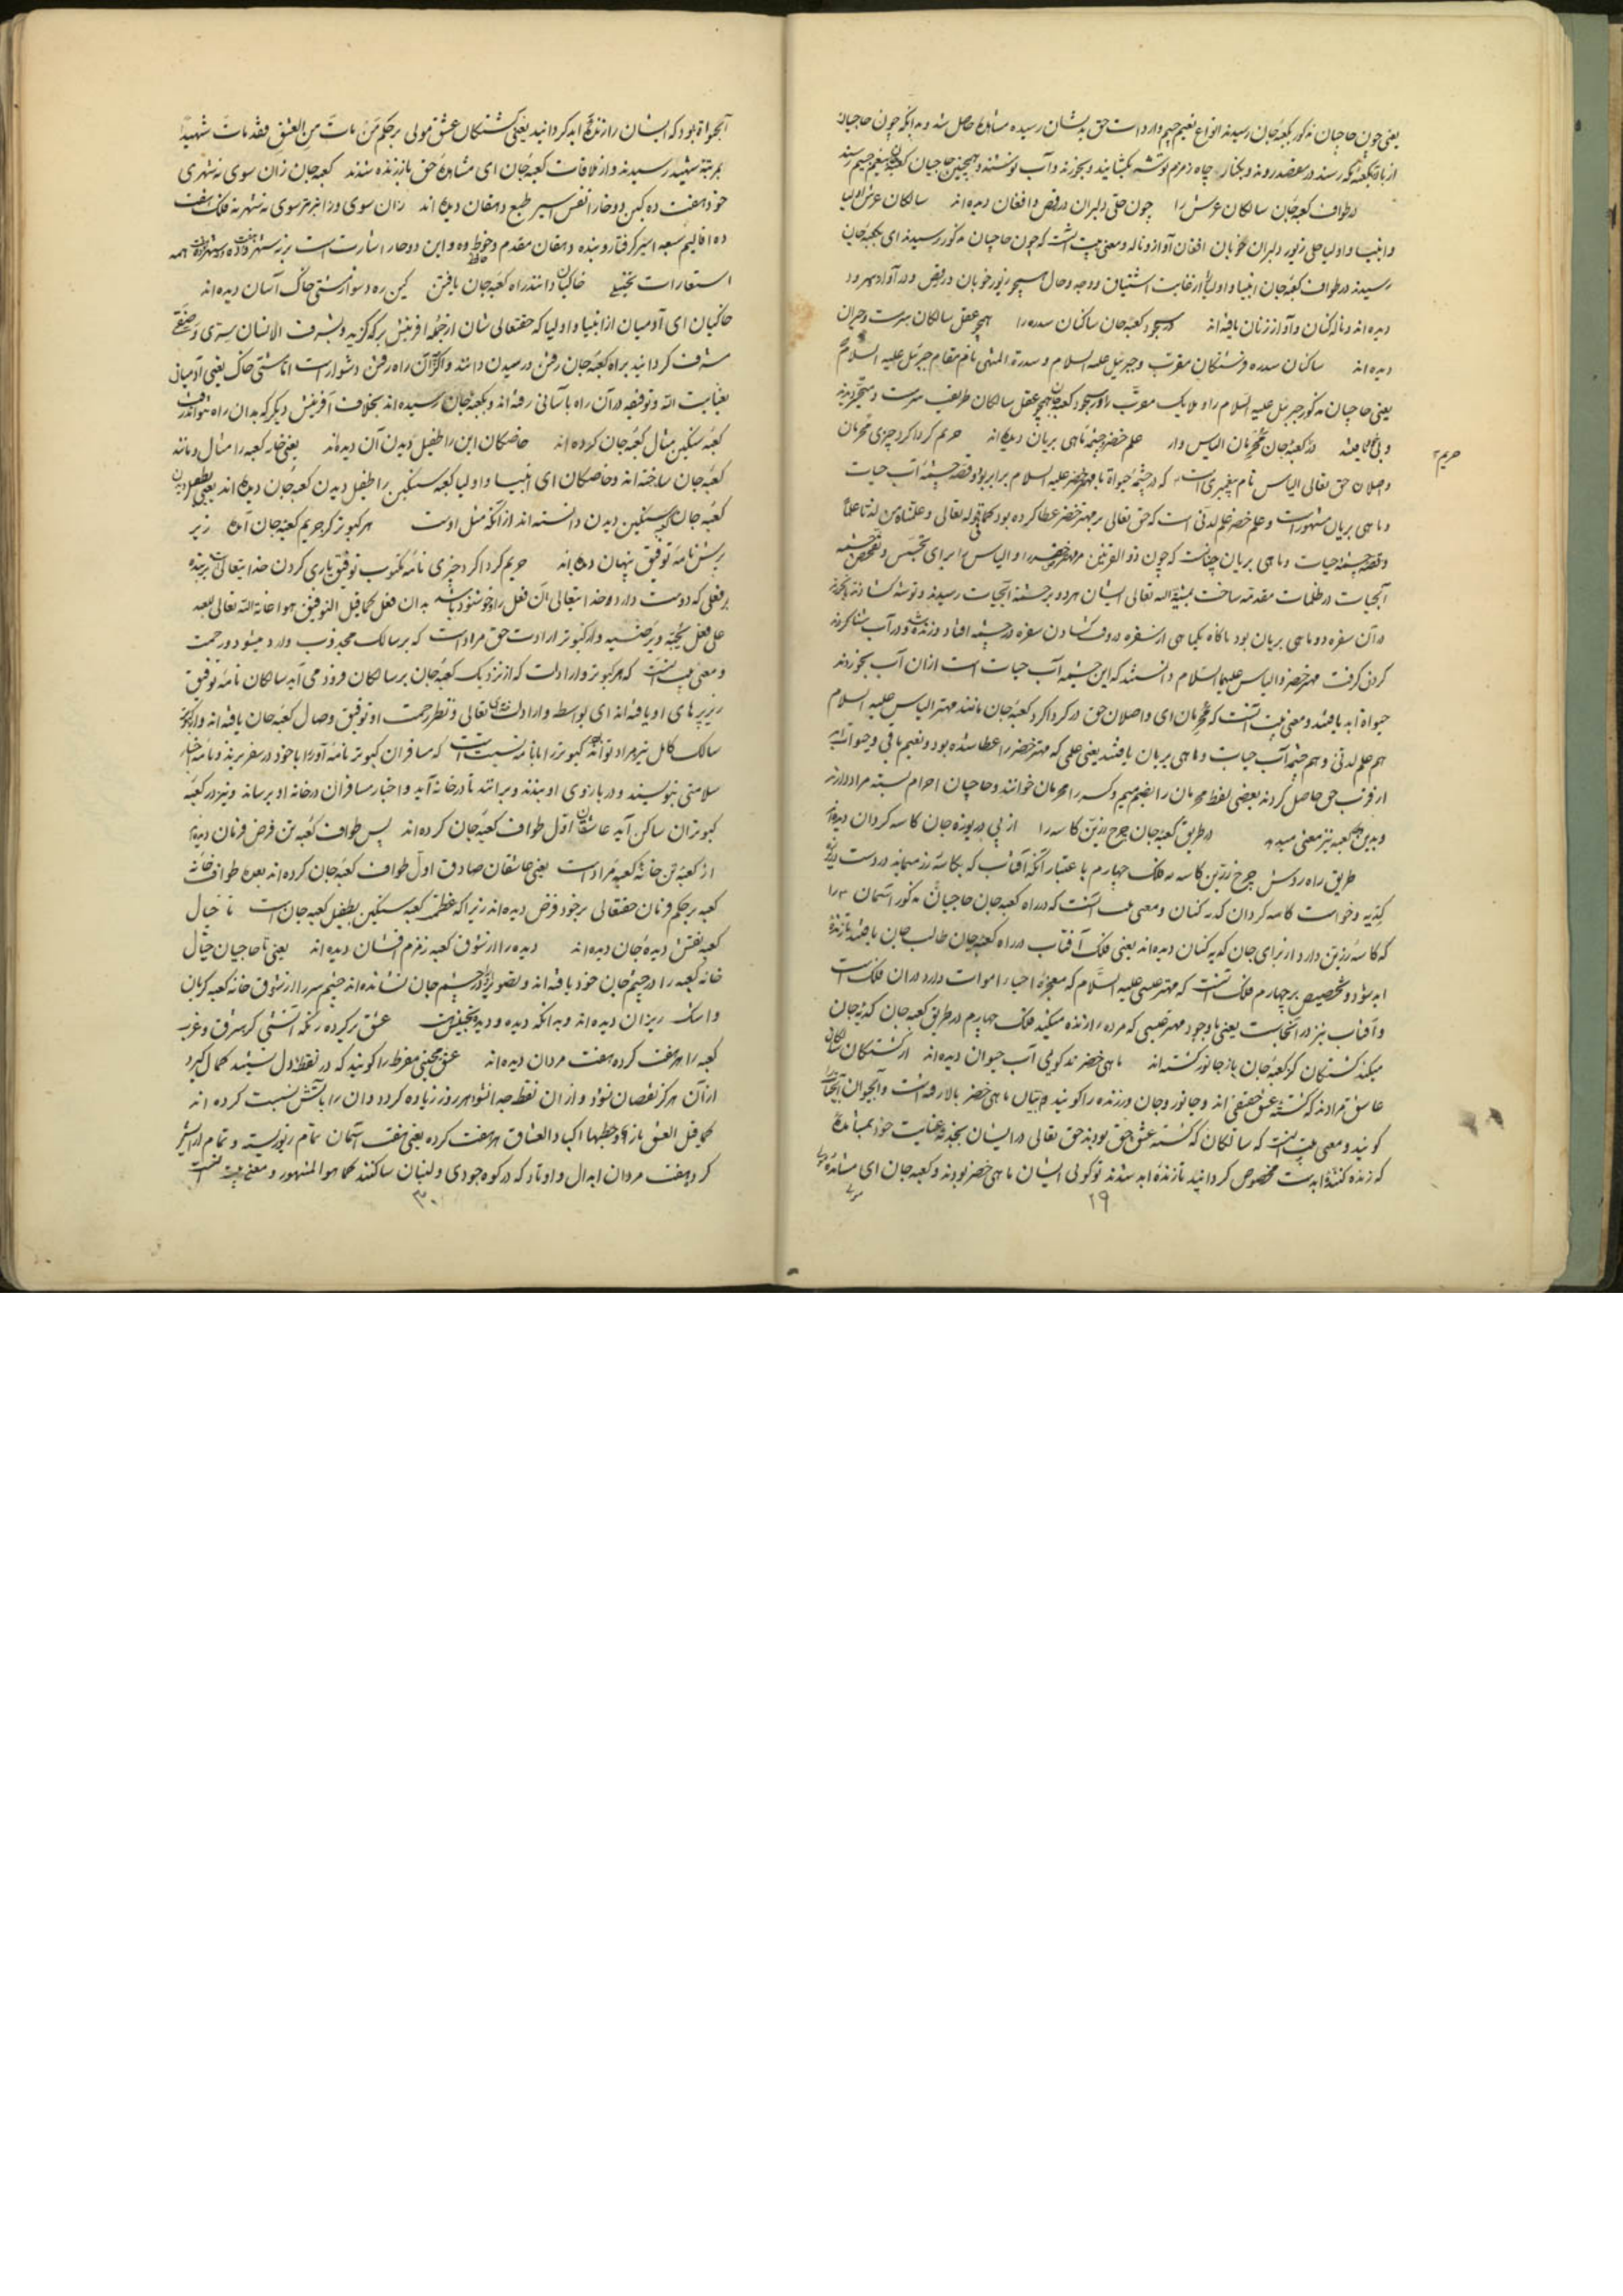 یعنی چون حاجیان مذکور بکعبه جان رسیدند انواع نعیم جیم وارد است حق بدیشان رسیده مشاهده حاصل شد و بدانکه چون حاجیان
از بادیه بکعبه مکه رسند در سعصد روند و بکنار چاه زمزم توشه بکشایند و بخورند و آب نوشند و همچنین حاجیان کعبه جان بنعیم جیم رسند
در طواف کعبه جان سالکان عرش را چون حلی دلبران در رقص و افغان دیده اند سالکان عرش اولیا
و انبیا و اولیا حلی زیور دلبران خوبان افغان آواز و ناله و معنی بیت آنست که چون حاجیان مذکور رسیدند ای بکعبه جان
رسیدند در طواف کعبه جان انبیا و اولیا را از غایت اشتیاق و وجد و حال همچو زیور خوبان در رقص و در آواز
دیده اند و ناله کنان و آواز زنان یافته اند در سجود کعبه جان ساکنان سدره را همچو عقل سالکان سرمست و حیران
دیده اند ساکنان سدره فرشتگان مقرب و جبرئیل علیه السلام و سدرة المنتهی نام مقام جبرئیل علیه السلام
یعنی حاجیان مذکور جبرئیل علیه السلام را و ملایک مقرب را در سجود کعبه جان همچو عقل سالکان طریقت سرمست و متحیر دیدند
در کعبه جان محرمان الیاس وار علم خضر و چشمه ماهی بریان دیده اند حریم گرداگرد چیزی محرمان
حریم
واصلان حق تعالی الیاس نام پیغمبری است که در چشمه حیوة با مهتر خضر علیه السلام برابر بود و قصه چشمه آب حیات
و ماهی بریان مشهور است و علم خضر علم لدنی است که حق تعالی بر مهتر خضر عطا کرده بود کما قوله تعالی و علمناه من لدنا علما
و قصه چشمه حیات و ماهی بریان چنانست که چون ذو القرنین مهتر خضر را و الیاس را برای تجسس و تفحص چشمه
آبحیات در ظلمات مقدمه ساخت بمشیة الله تعالی ایشان هر دو بر چشمه آبحیات رسیدند و توشه کشادند
در آن سفره دو ماهی بریان بود ناگاه یک ماهی از سفره در وقت کشادن سفره در چشمه افتاد و زنده شد و در آب شنا کردند
کردن گرفت مهتر خضر و الیاس علیهما السلام دانستند که این چشمه آب حیات است ازان آب بخوردند
حیوة ابد یافتند و معنی بیت آنست که محرمان ای واصلان حق در گرداگرد کعبه جان مانند مهتر الیاس علیه السلام
هم علم لدنی و هم چشمه آب حیات و ماهی بریان یافتند یعنی علمی که مهتر خضر را عطا شده بود و نعیم باقی و حیوة
از قرب حق حاصل کردند بعضی لفظ محرمان را بضم میم و کسر را محرمان خوانند و حاجیان احرام بسته مراد دارند
و بدین وجه نیز معنی میدهد در طریق کعبه جان چرخ زرین کاسه را از پی دریوزه جان کاسه گردان دیده اند
طریق راه روش چرخ زرین کاسه فلک چهارم با عتبار آنکه آفتاب که بکاسه زر میماند در دست
کدیه و خواست کاسه گردان گدیه کنان و معنی بیت آنست که در راه کعبه جان حاجیان مذکور آسمان را
که کاسه زرین دارد از برای جان گدیه کنان دیده اند یعنی فلک آفتاب در راه کعبه جان طالب جان یافتند تا زنده
ابد شود و تخصیص بر چهارم فلک آنست که مهتر عیسی علیه السلام که معجزه احیا اموات دارد در آن فلک است
و آفتاب نیز در آنجاست یعنی با وجود مهتر عیسی که مرده را زنده میکند فلک چهارم در طریق کعبه جان گدیه جان
میکند کشتگان کز کعبه جان باز جانور گشته اند ماهی خضرند گویی آب حیوان دیده اند از کشتگان
عاشق مرادند که کشته عشق حقیقی اند و جانور و جان ور زنده را گویند ماهی خضر بالا رفته است و آب حیوان آبحیات
گویند و معنی بیت آنست که سالکان که کشته عشق حق بودند حق تعالی در ایشان بجذبه عنایت خود بمشاهده
که زنده کننده ابدست مخصوص گردانید تا زنده ابد شدند تو گویی ایشان ماهی خضر بودند و کعبه جان ای مشاهده
۲۹
آبحیوة بود که ایشان را زنده ابد گردانید یعنی کشتگان عشق مولی بر حکم من مات من العشق فقد مات شهیدا
بمرتبه شهید رسیدند و از ملاقات کعبه جان ای مشاهده حق باز زنده شدند کعبه جان زان سوی نه شهری
خود هفت ده کین دو دخار انفس اسیر طبع دهقان دیده اند زان سوی ورا نه شهر نه فلک هفت
ده اقالیم سبعه اسیر گرفتار و بنده دهقان مقدم و این دو حار اشارت است بر نه شهر و ده همه
استعارات تخییلی خاکیان دانند راه کعبه جان یافتن کین ره دشوار مشتی خاک آسان دیده اند
خاکیان ای آدمیان از انبیا و اولیا که حقتعالی شان از جمله آفرینش برگزید و بشرف الانسان سری و صفتی
مشرف گردانید براه کعبه جان رفتن و رسیدن دانند و اگر آن راه رفتن دشوار است اما مشتی خاک یعنی آدمیان
بعنایت الله و توفیقه در آن راه بآسانی رفته اند و بکعبه جان رسیده اند بخلاف آفرینش دیگر که بدان راه نتوانند رفت
کعبه سنگین مثال کعبه جان کرده اند خاصگان این را طفیل دیدن آن دیده اند یعنی خانه کعبه را مثال و مانند
کعبه جان ساخته اند و خاصگان ای انبیا و اولیا کعبه سنگین را طفیل دیدن کعبه جان دیده اند یعنی بطفیل دیدن
کعبه جان کعبه سنگین دیدن دانسته اند از آنکه مثل اوست هر کبوتر کز حریم کعبه جان آمده زیر
پرش نامه توفیق پنهان دیده اند حریم گرداگرد چیزی نامه مکتوب توفیق یاری کردن خدایتعالی بر بنده
بر فعلی که دوست دارد و خدایتعالی آن فعل را و خوشنود باشد بدان فعل کما قیل التوفیق هو اعانة الله تعالی لعبد
علی فعل یحبه و یرضیه و از کبوتر ارادت حق مراد است که بر سالک مجذوب وارد میشود و رحمت
و معنی بیت آنست که هر کبوتر وارادت که از نزدیک کعبه جان بر سالکان فرود می آید سالکان نامه توفیق
زیر پرهای او یافته اند ای بواسطه وارادت تعالی و نظر رحمت او توفیق وصال کعبه جان یافته اند و از کبوتر
سالک کامل نیز مراد تواند بود کبوتر را با نامه نسبت است که مسافران کبوتر نامه آور را با خود در سفر برند و نامه اخبار
سلامتی بنویسند و در بازوی او بندند و پرانند تا در خانه آید و اخبار مسافران در خانه او برساند و نیز در کعبه
کبوتران ساکن آید عاشقان اول طواف کعبه جان کرده اند پس طواف کعبه تن فرض فرمان دیده اند
از کعبه تن خانه کعبه مراد است یعنی عاشقان صادق اول طواف کعبه جان کرده اند بعده طواف خانه
کعبه بر حکم فرمان حقتعالی بر خود فرض دیده اند زیرا که عظمت کعبه سنگین بطفیل کعبه جان است تا خیال
کعبه نقش دیده جان دیده اند دیده را از شوق کعبه زمزم افشان دیده اند یعنی تا حاجیان خیال
خانه کعبه را در چشم جان خود یافته اند و بتصور در چشم جان نشانده اند چشم سر را از شوق خانه کعبه گریان
و اشک ریزان دیده اند و بدانکه دیده و دیده بتجنیس است عشق برکرده بمکه آتشی کز شرق و غرب
کعبه را هر هفت کرده هفت مردان دیده اند عشق محبتی مفرط را گویند که در نقطه دل نشیند کمال گیرد
از آن هرگز نقصان نشود و از آن نقطه جدا نشود هر روز زیاده گردد و آن را بآتش نسبت کرده اند
کما قیل العشق نار و حطبها اکباد العشاق هر هفت کرده یعنی هفت آسمان تمام زیور بسته و تمام آراسته
کرد هفت مردان ابدال و اوتاد که در کوه جودی و لبنان ساکنند کما هو المشهور و معنی بیت آنست
۳۰